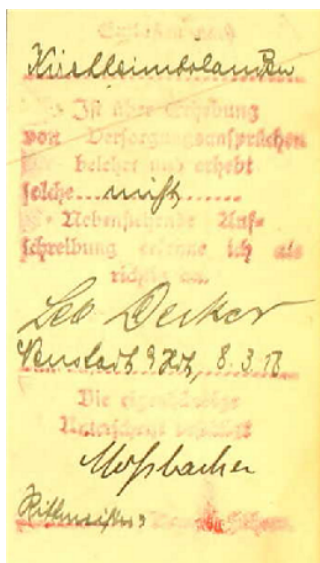 Entlassen nach
Kirchheimbolanden
Ist über Erhebung
von Versorgungsansprüchen
belehrt und erhebt
solche nicht
Nebenstehende Auf=
schreibung erkenne ich als
richtig an.
Leo Decker
Neustadt a/Hdt, 8.3.
Die eigenhändige
Unterschrift bestätigt
Moßbacher
Rittmeister